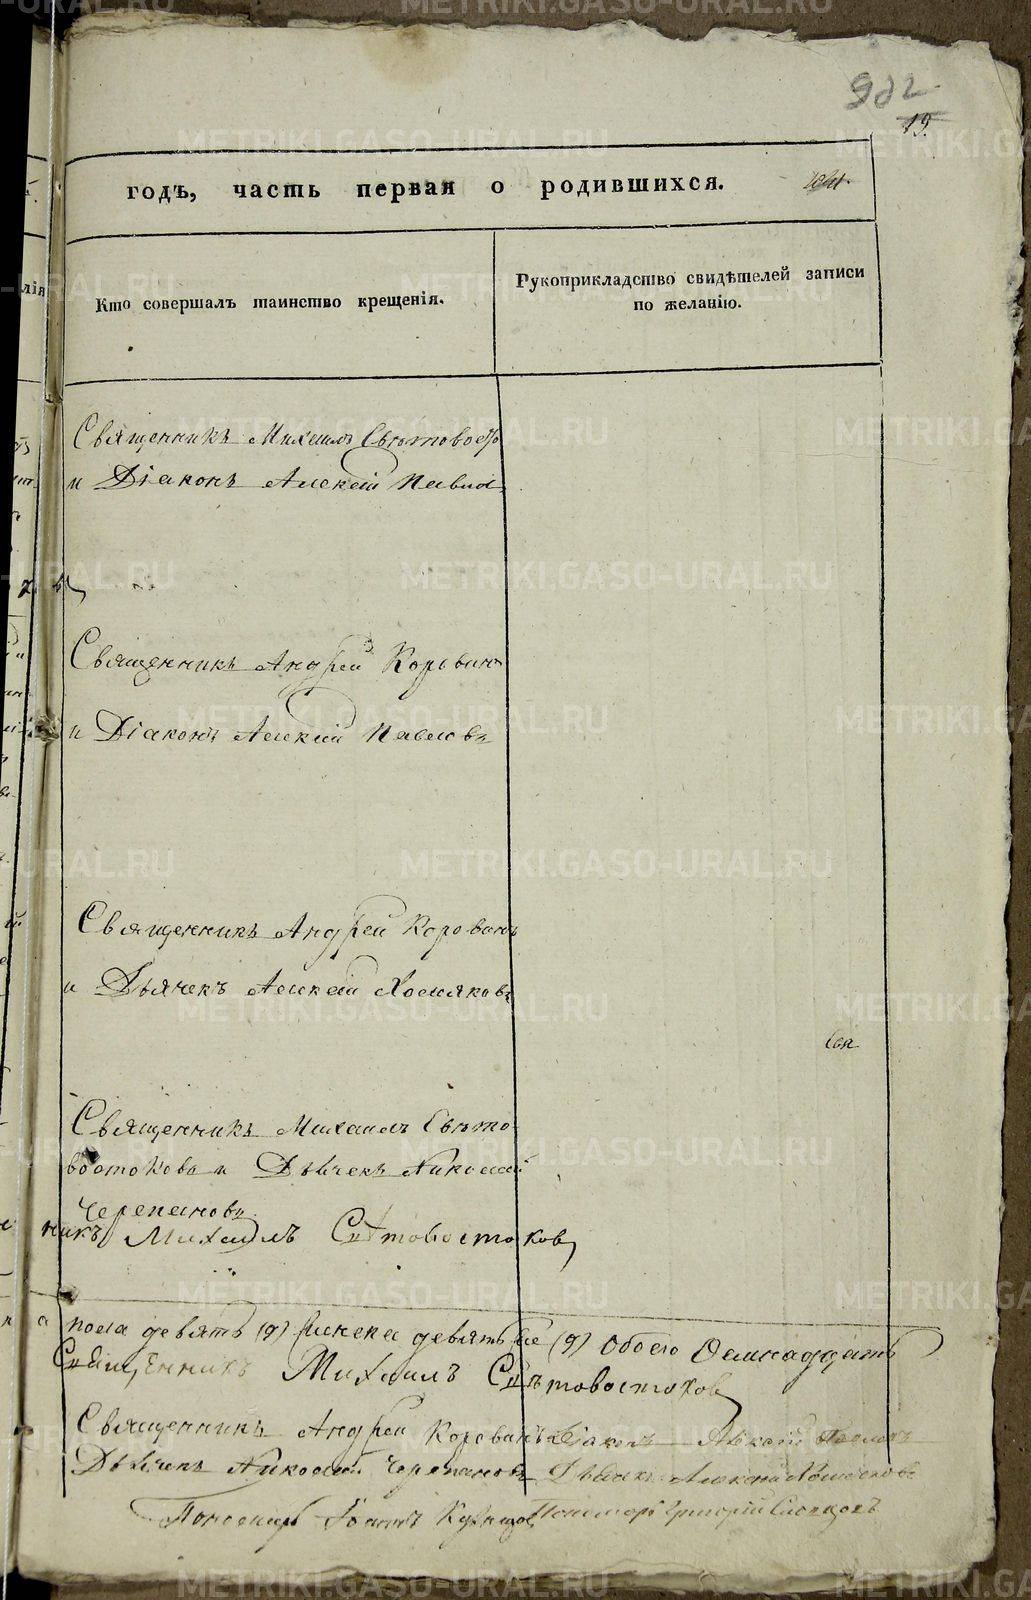 982
19.
годъ, часть первая о родившихся.
Кто совершалъ таинство крещенія.
Рукоприкладство свидѣтелей записи по желанію.
Священникъ Михаилъ Свѣтовосто
и Діаконъ Алексій Павлов
Священникъ Андрей Коровинъ
и Діаконъ Алексій Павловъ
Священникъ Андрей Коровинъ
и Дьячекъ Алексій Хомяковъ
Свя
Священникъ Михаилъ Свѣто
востоковъ и Дьячекъ Николай
Черепановъ
никъ Михаилъ Свѣтовостоковъ
пола девять (9) женска девять (9) Обоего Осмнадцать
Священникъ Михаилъ Свѣтовостоковъ
Священникъ Андрей Коровинъ Діаконъ Алексій Павловъ
Дьячекъ Николай Черепановъ Дьячекъ Алексій Хомяковъ
Пономарь Іоаннъ Пономарь Григорій
METRIKI.GASO-URAL.RU